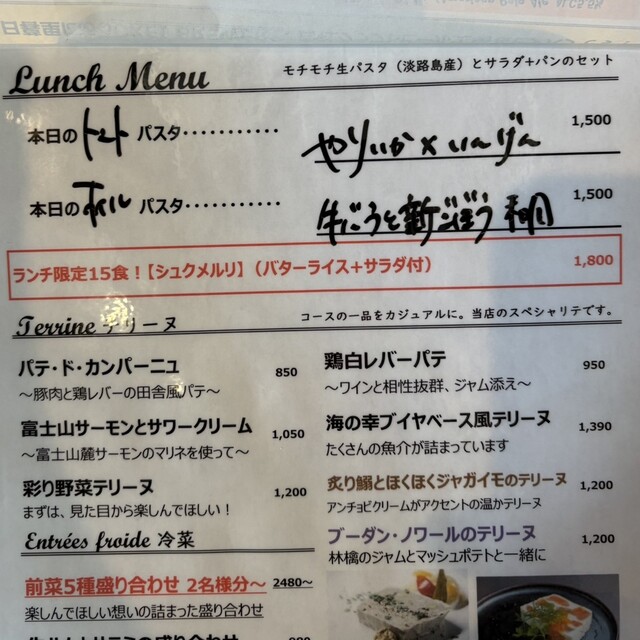 Lunch Menu
モチモチ生パスタ（淡路島産）とサラダ+パンのセット
本日の トマト パスタ・・・・・・・・・・・ やりいか×いんげん 1,500
本日の オイル パスタ・・・・・・・・・・・ 牛ごろと新ごぼう 1,500
ランチ限定15食！【シュクメルリ】（バターライス+サラダ付） 1,800
Terrine テリーヌ
コースの一品をカジュアルに。当店のスペシャリテです。
パテ・ド・カンパーニュ 850
～豚肉と鶏レバーの田舎風パテ～
富士山サーモンとサワークリーム 1,050
～富士山麓サーモンのマリネを使って～
彩り野菜テリーヌ 1,200
まずは、見た目から楽しんでほしい！
鶏白レバーパテ 950
～ワインと相性抜群、ジャム添え～
海の幸ブイヤベース風テリーヌ 1,390
たくさんの魚介が詰まっています
炙り鰯とほくほくジャガイモのテリーヌ 1,200
アンチョビクリームがアクセントの温かテリーヌ
ブーダン・ノワールのテリーヌ 1,200
林檎のジャムとマッシュポテトと一緒に
Entrées froide 冷菜
前菜5種盛り合わせ 2名様分～ 2480～
楽しんでほしい想いの詰まった盛り合わせ